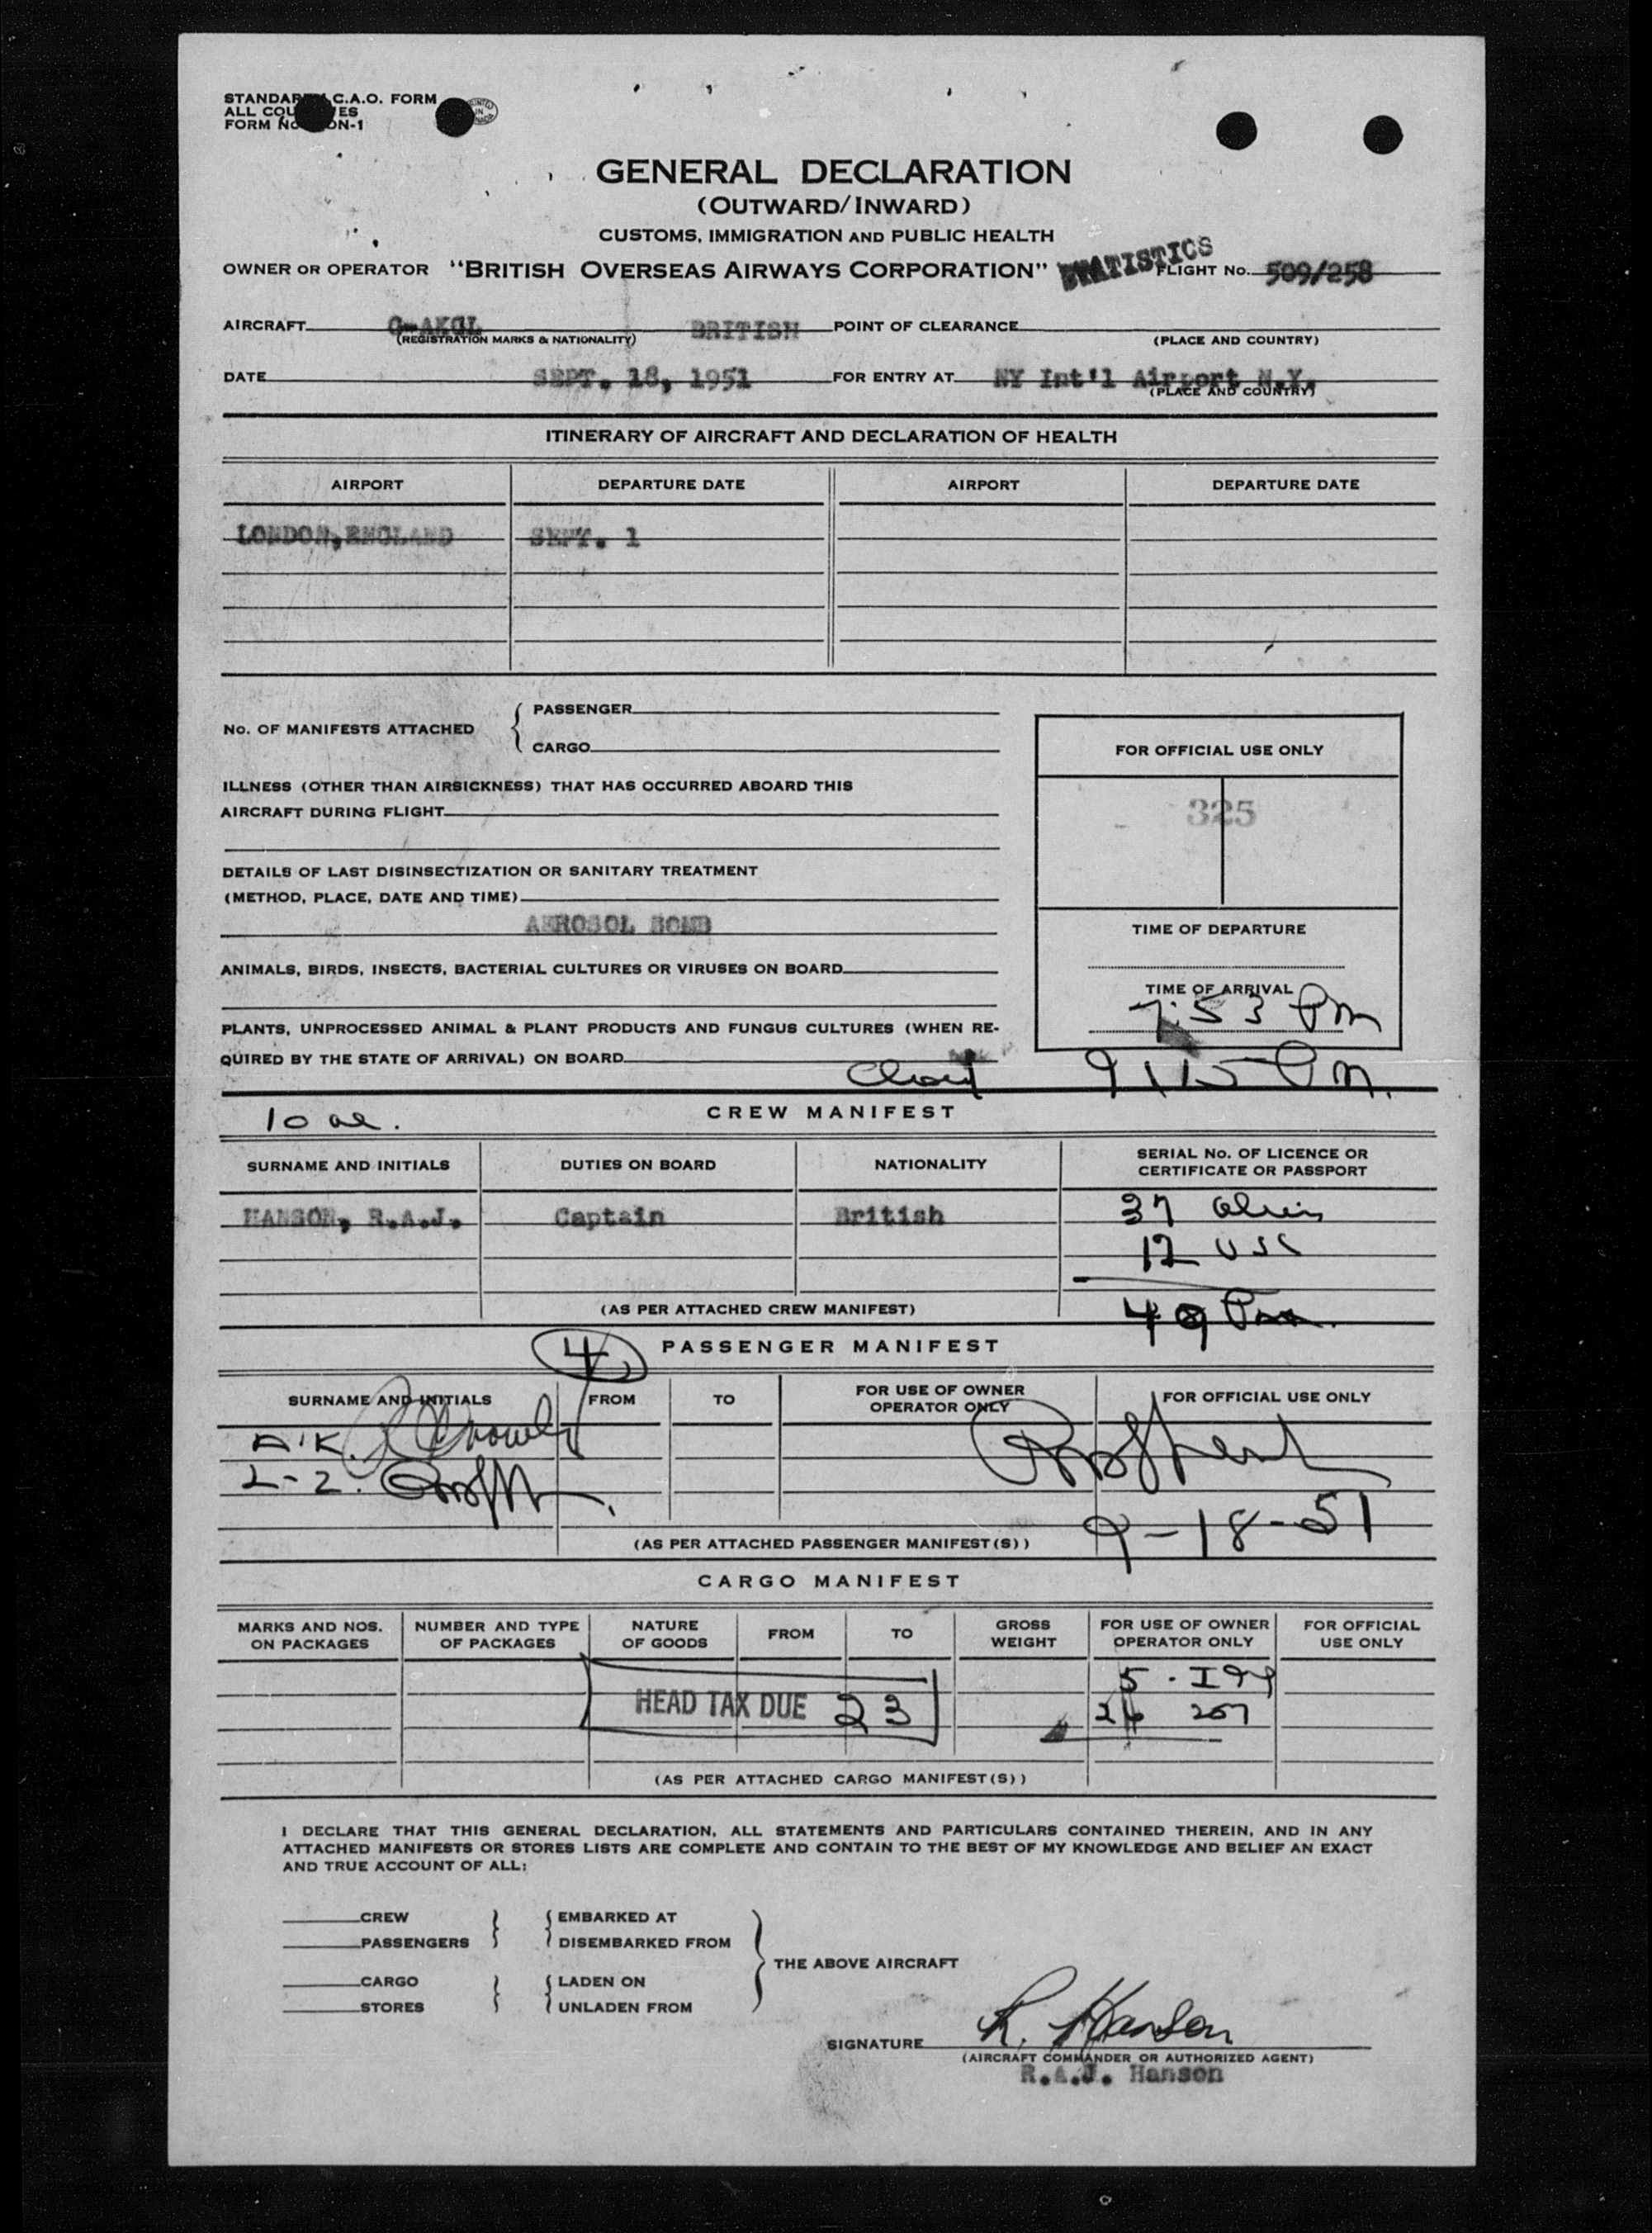 STANDARD I.C.A.O. FORM
ALL COUNTRIES
FORM No. CON-1
PRINTED IN CANADA
GENERAL DECLARATION
(OUTWARD/INWARD)
CUSTOMS, IMMIGRATION AND PUBLIC HEALTH
OWNER OR OPERATOR "BRITISH OVERSEAS AIRWAYS CORPORATION" STATISTICS FLIGHT No. 509/258
AIRCRAFT G-AKGL BRITISH POINT OF CLEARANCE
(REGISTRATION MARKS & NATIONALITY) (PLACE AND COUNTRY)
DATE SEPT. 18, 1951 FOR ENTRY AT NY Int'l Airport N.Y.
(PLACE AND COUNTRY)
ITINERARY OF AIRCRAFT AND DECLARATION OF HEALTH
AIRPORT DEPARTURE DATE AIRPORT DEPARTURE DATE
LONDON, ENGLAND SEPT. 1
No. OF MANIFESTS ATTACHED { PASSENGER
CARGO
FOR OFFICIAL USE ONLY
ILLNESS (OTHER THAN AIRSICKNESS) THAT HAS OCCURRED ABOARD THIS
AIRCRAFT DURING FLIGHT
325
DETAILS OF LAST DISINSECTIZATION OR SANITARY TREATMENT
(METHOD, PLACE, DATE AND TIME)
AEROSOL BOMB
TIME OF DEPARTURE
ANIMALS, BIRDS, INSECTS, BACTERIAL CULTURES OR VIRUSES ON BOARD
TIME OF ARRIVAL
7:53 Pm
PLANTS, UNPROCESSED ANIMAL & PLANT PRODUCTS AND FUNGUS CULTURES (WHEN RE-
QUIRED BY THE STATE OF ARRIVAL) ON BOARD
9:15 Pm.
10 ae. CREW MANIFEST
SURNAME AND INITIALS DUTIES ON BOARD NATIONALITY SERIAL No. OF LICENCE OR
CERTIFICATE OR PASSPORT
HANSON, R.A.J. Captain British 37 alien
12 USC
(AS PER ATTACHED CREW MANIFEST) 49
4 PASSENGER MANIFEST
SURNAME AND INITIALS FROM TO FOR USE OF OWNER
OPERATOR ONLY FOR OFFICIAL USE ONLY
L-2.
9-18-51
(AS PER ATTACHED PASSENGER MANIFEST(S))
CARGO MANIFEST
MARKS AND NOS.
ON PACKAGES NUMBER AND TYPE
OF PACKAGES NATURE
OF GOODS FROM TO GROSS
WEIGHT FOR USE OF OWNER
OPERATOR ONLY FOR OFFICIAL
USE ONLY
HEAD TAX DUE 23
(AS PER ATTACHED CARGO MANIFEST(S))
I DECLARE THAT THIS GENERAL DECLARATION, ALL STATEMENTS AND PARTICULARS CONTAINED THEREIN, AND IN ANY
ATTACHED MANIFESTS OR STORES LISTS ARE COMPLETE AND CONTAIN TO THE BEST OF MY KNOWLEDGE AND BELIEF AN EXACT
AND TRUE ACCOUNT OF ALL:
CREW EMBARKED AT
PASSENGERS DISEMBARKED FROM
THE ABOVE AIRCRAFT
CARGO LADEN ON
STORES UNLADEN FROM
SIGNATURE R. Hanson
(AIRCRAFT COMMANDER OR AUTHORIZED AGENT)
R.A.J. Hanson